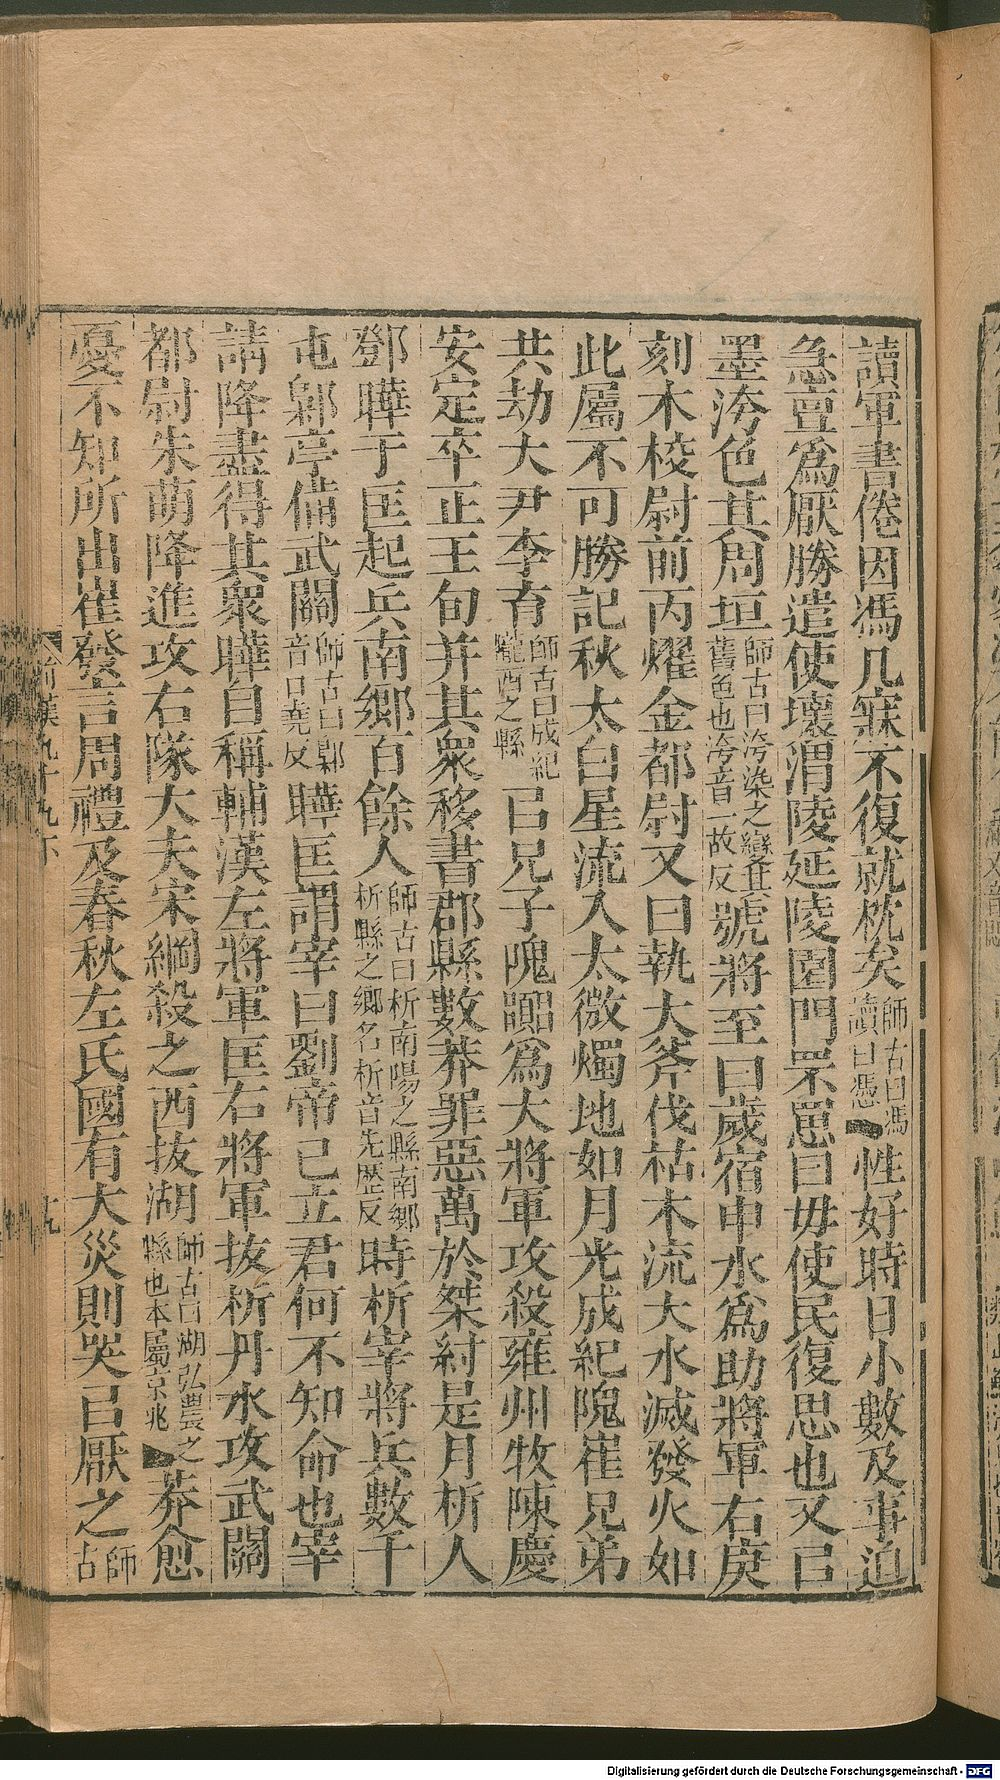 讀軍書倦因馮几寐不復就枕矣師古曰馮讀曰憑性好時日小數及事迫
急亶爲厭勝遣使壞渭陵延陵園門罘罳曰毋使民復思也又㠯
墨洿色其周垣師古曰洿染之變其舊色也洿音一故反號將至曰歲宿申水爲助將軍右庚
刻木校尉前丙燿金都尉又曰執大斧伐枯木流大水滅發火如
此屬不可勝記秋太白星流入太微燭地如月光成紀隗崔兄弟
共劫大尹李育師古曰成紀隴西之縣㠯兄子隗嚻爲大將軍攻殺雍州牧陳慶
安定卒正王旬并其衆移書郡縣數莽罪惡萬於桀紂是月析人
鄧曄于匡起兵南鄉百餘人師古曰析南陽之縣南鄉析縣之鄉名析音先歷反時析宰將兵數千
屯鄡亭備武關師古曰鄡音口堯反曄匡謂宰曰劉帝已立君何不知命也宰
請降盡得其衆曄自稱輔漢左將軍匡右將軍拔析丹水攻武關
都尉朱萌降進攻右隊大夫宋綱殺之西拔湖師古曰湖弘農之縣也本屬京兆莽愈
憂不知所出崔發言周禮及春秋左氏國有大災則哭㠯厭之師古
前漢九十九下
十九
Digitalisierung gefördert durch die Deutsche Forschungsgemeinschaft - DFG